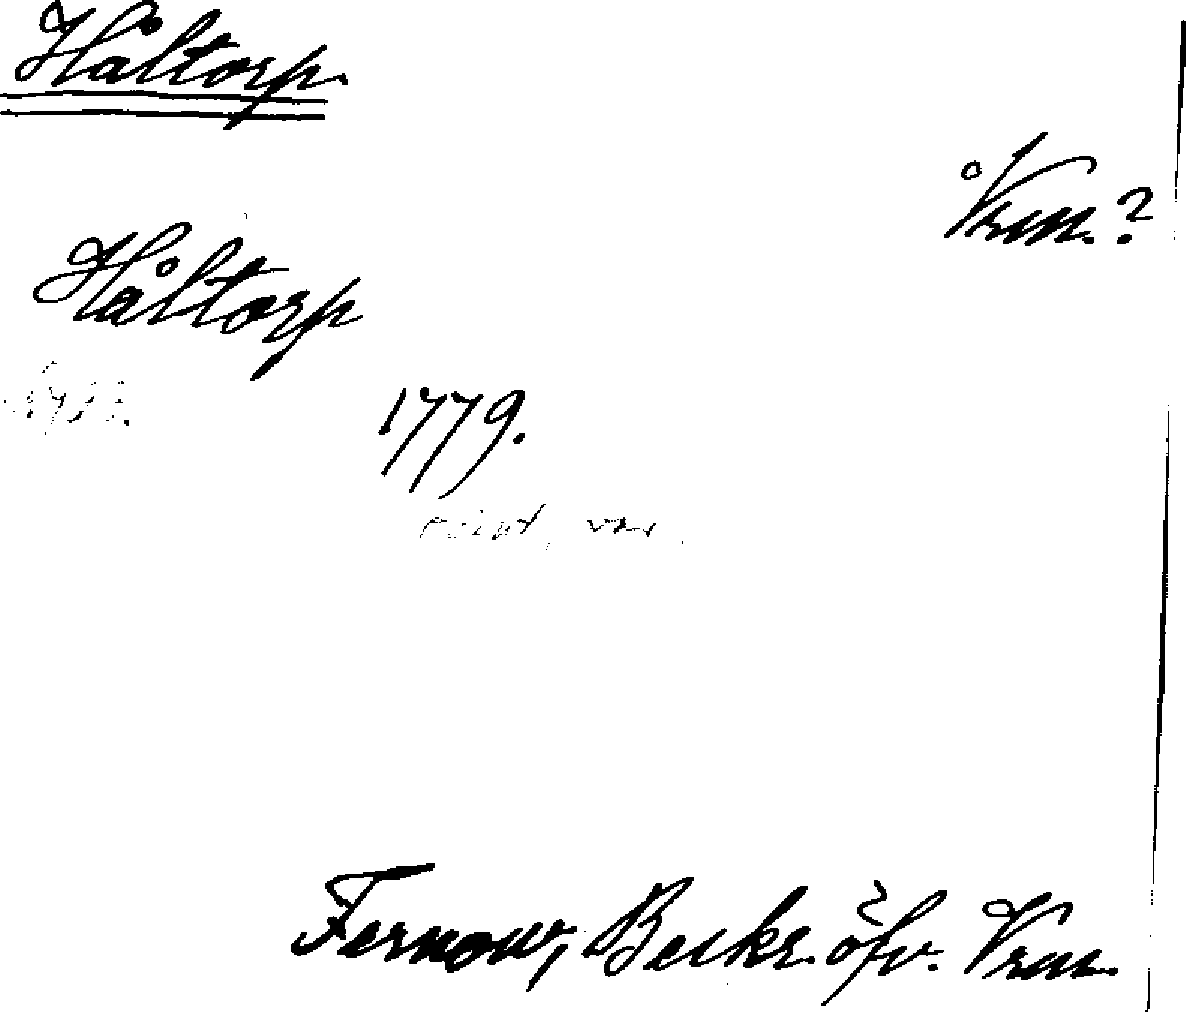 Håltorp.
Vrm.?
Håltorp
1779.
Fernow, Beskr. öfv. Vrm.